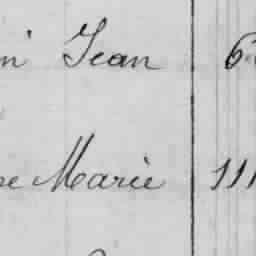 n Jean 6
e Marie 111